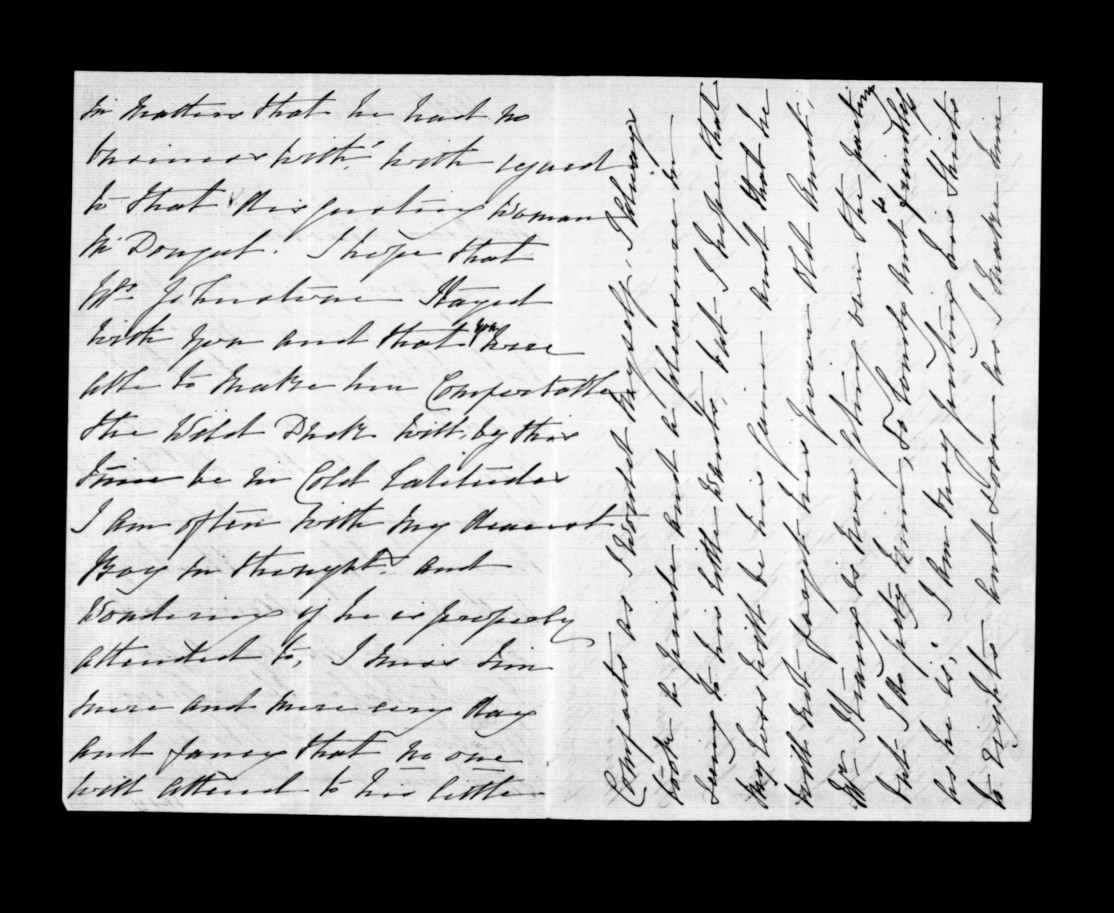 in matters that he had no
business with. with regard
to that disgusting woman
McDougal. I hope that
Mrs Johnstone stayed
with you and that you were
able to make her comfortable
the Wild Duck will by this
time be in Cold Latitudes
I am often with my dearest
Boy in thought. and
wondering if he is properly
attended to, I miss him
more and more every day
and fancy that no one
will attend to his little
Comforts as I would myself, I always
took a pride and a pleasure in
seeing to his little wants, but I hope that
my loss will be his gain and that he
will not forget his poor old Aunt,
Mr Strang is knocking over the
but I do pity to so lonely and friendless
as he is, I am busy putting his Shirts
to rights and soon as I make him